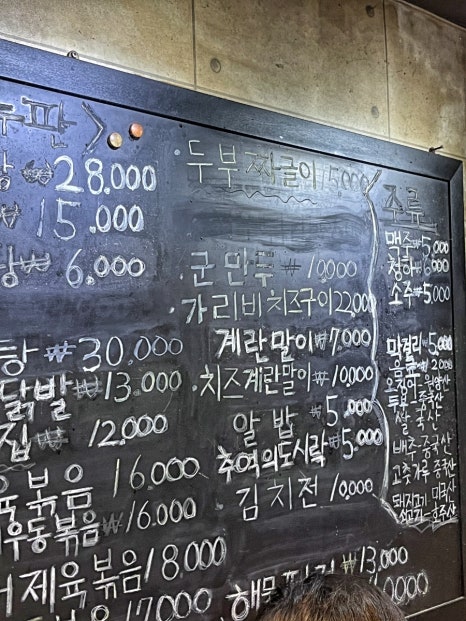 판 >
28.000
₩ 15.000
₩ 6.000
탕 ₩30.000
닭발 ₩13.000
집 ₩ 12.000
육볶음 16.000
우동볶음 ₩16.000
제육볶음 18.000
17.000
두부짜글이 15.000
군만두 ₩ 10,000
가리비치즈구이 22,000
계란말이 ₩7,000
치즈계란말이 ₩10,000
알밥 ₩5,000
추억의도시락 ₩5,000
김치전 10,000
해물 ₩13.000
주류
맥주 ₩5,000
청하 ₩6,000
소주 ₩5,000
막걸리 ₩5,000
음료 ₩2,000
오징어 - 원양산
두부 - 중국산
쌀 국산
배추 - 중국산
고추가루 중국산
돼지고기 - 미국산
쇠고기 - 호주산